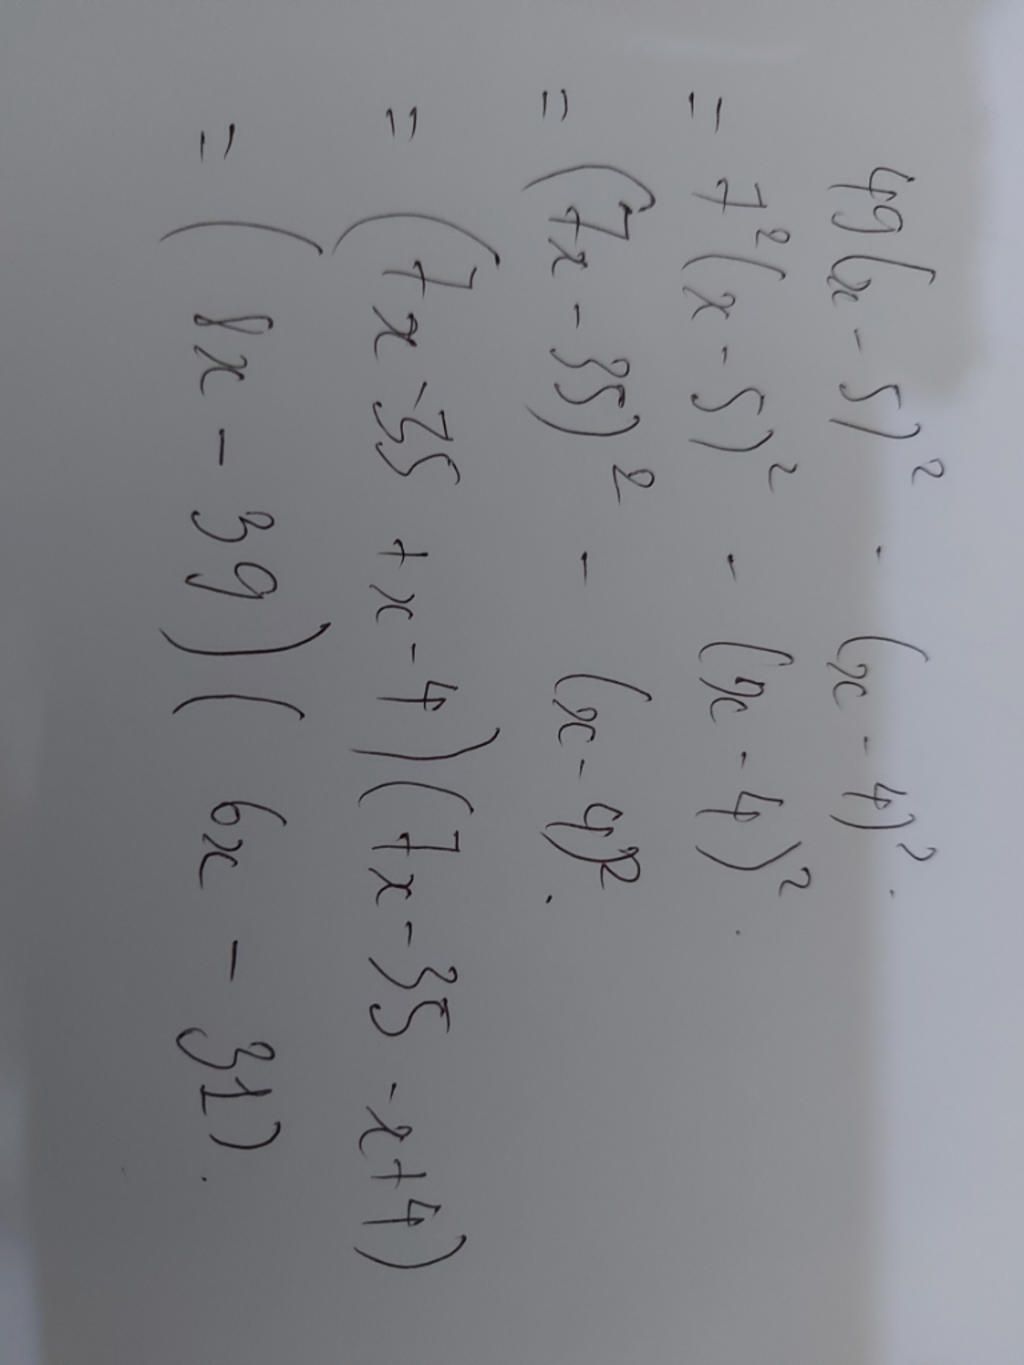 49(x - 5)² - (x - 4)².
= 7²(x - 5)² - (x - 4)².
= (7x - 35)² - (x - 4)².
= (7x - 35 + x - 4)(7x - 35 - x + 4)
= (8x - 39)(6x - 31).